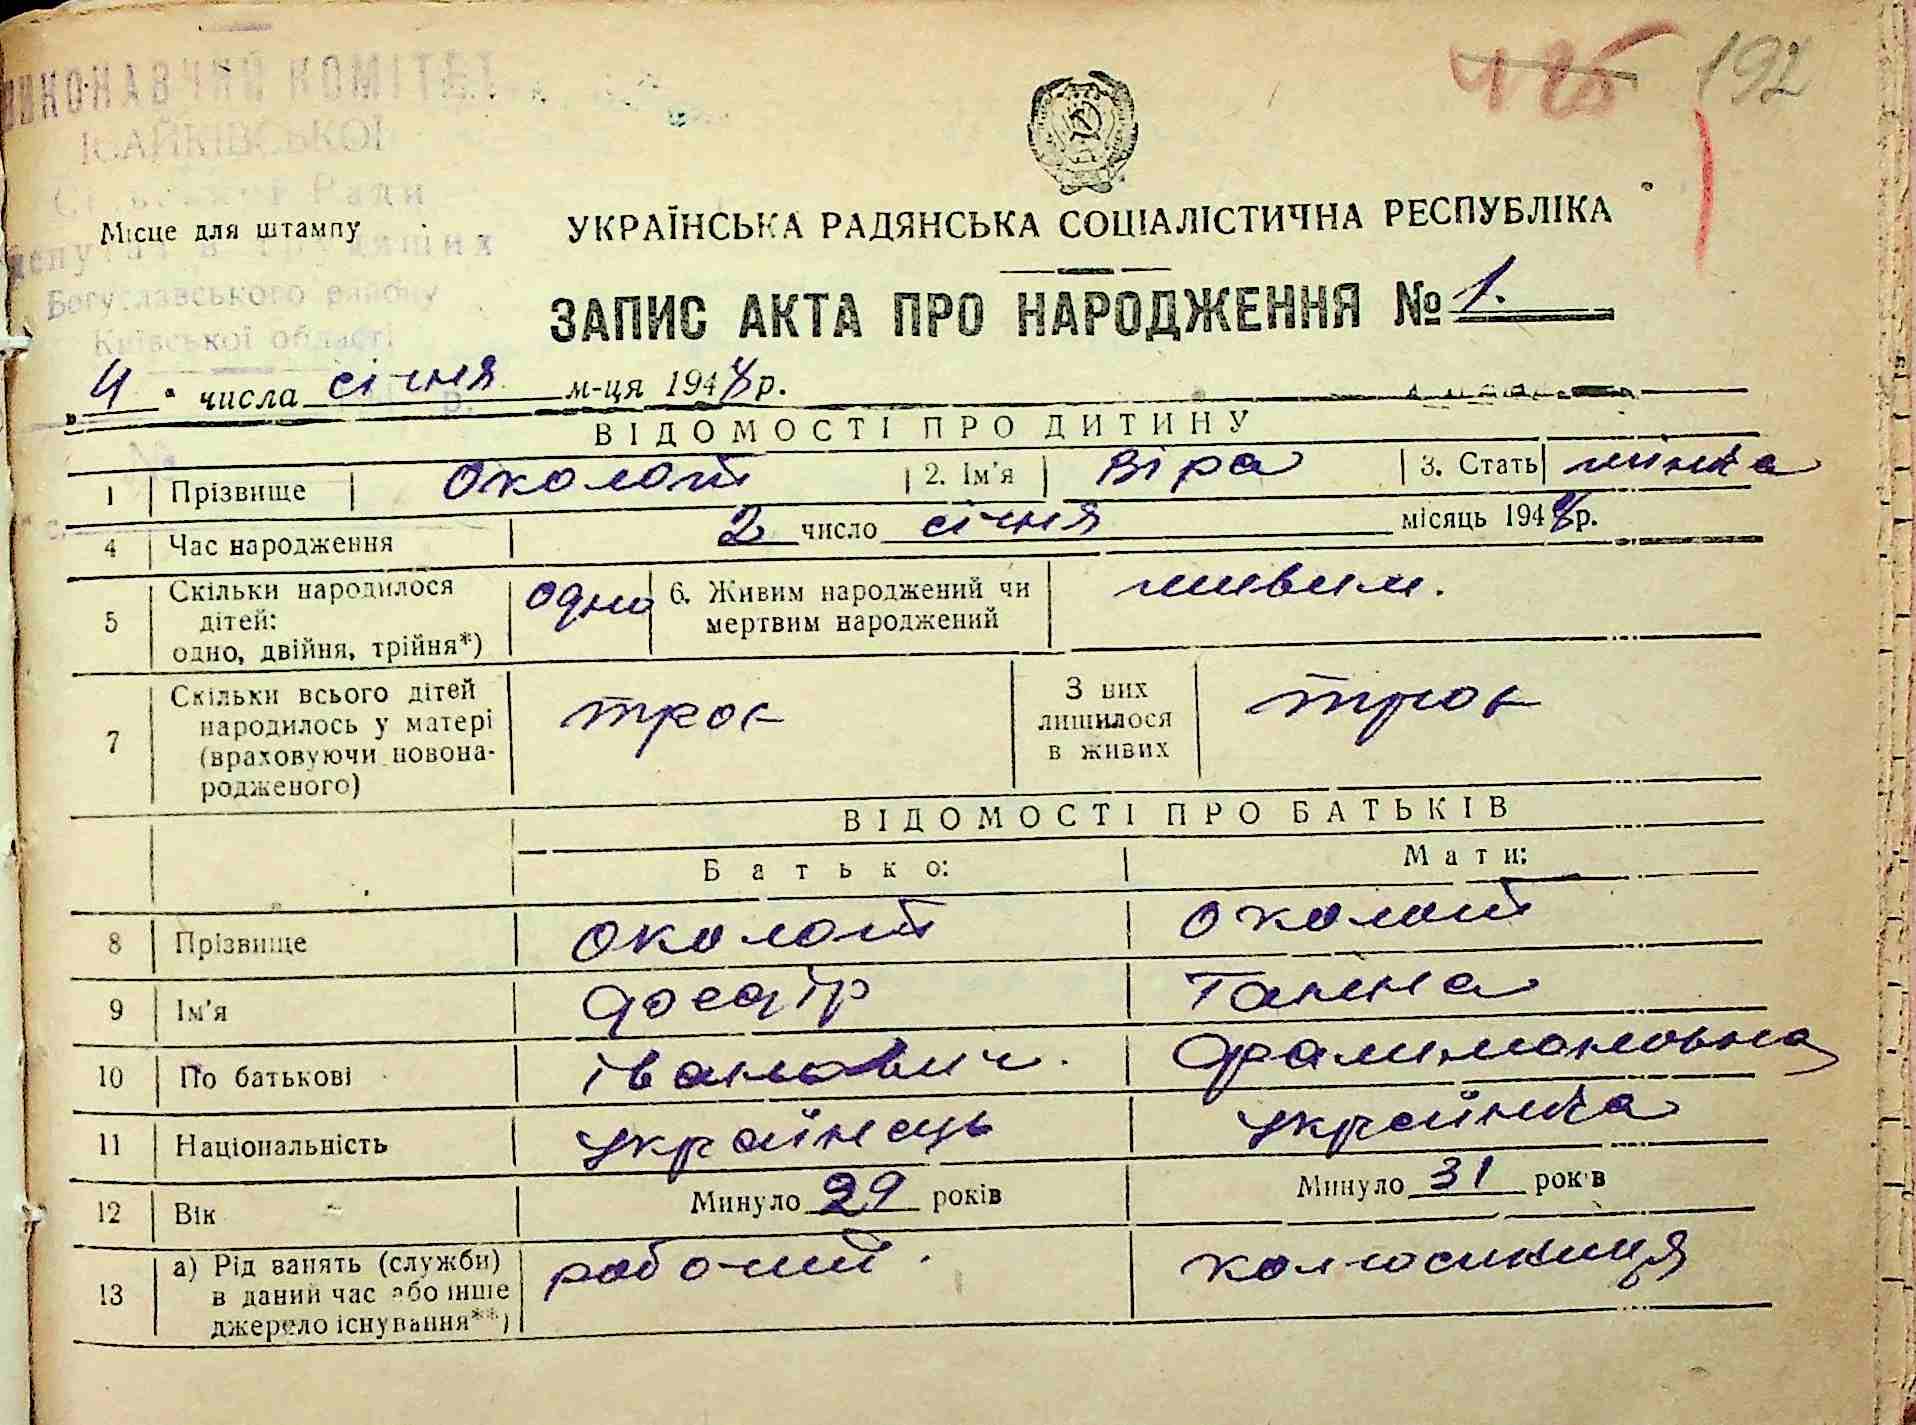 ВИКОНАВЧИЙ КОМІТЕТ
ІСАЙКІВСЬКОЇ
Сільської Ради
депутатів трудящих
Богуславського району
Київської області
192
Місце для штампу
УКРАЇНСЬКА РАДЯНСЬКА СОЦІАЛІСТИЧНА РЕСПУБЛІКА
ЗАПИС АКТА ПРО НАРОДЖЕННЯ № 1.
„4" числа січня м-ця 1948 р.
ВІДОМОСТІ ПРО ДИТИНУ
1 Прізвище Околот 2. Ім'я Віра 3. Стать жінка
4 Час народження 2 число січня місяць 1948 р.
5 Скільки народилося дітей: одно, двійня, трійня*) одно 6. Живим народжений чи мертвим народжений живим.
7 Скільки всього дітей народилось у матері (враховуючи новонародженого) троє З них лишилося в живих троє
ВІДОМОСТІ ПРО БАТЬКІВ
Батько: Мати:
8 Прізвище Околот Околот
9 Ім'я Федір Ганна
10 По батькові Іванович. Филимоновна
11 Національність українець українка
12 Вік Минуло 29 років Минуло 31 років
13 а) Рід занять (служби) в даний час або інше джерело існування**) робочий. колгоспниця